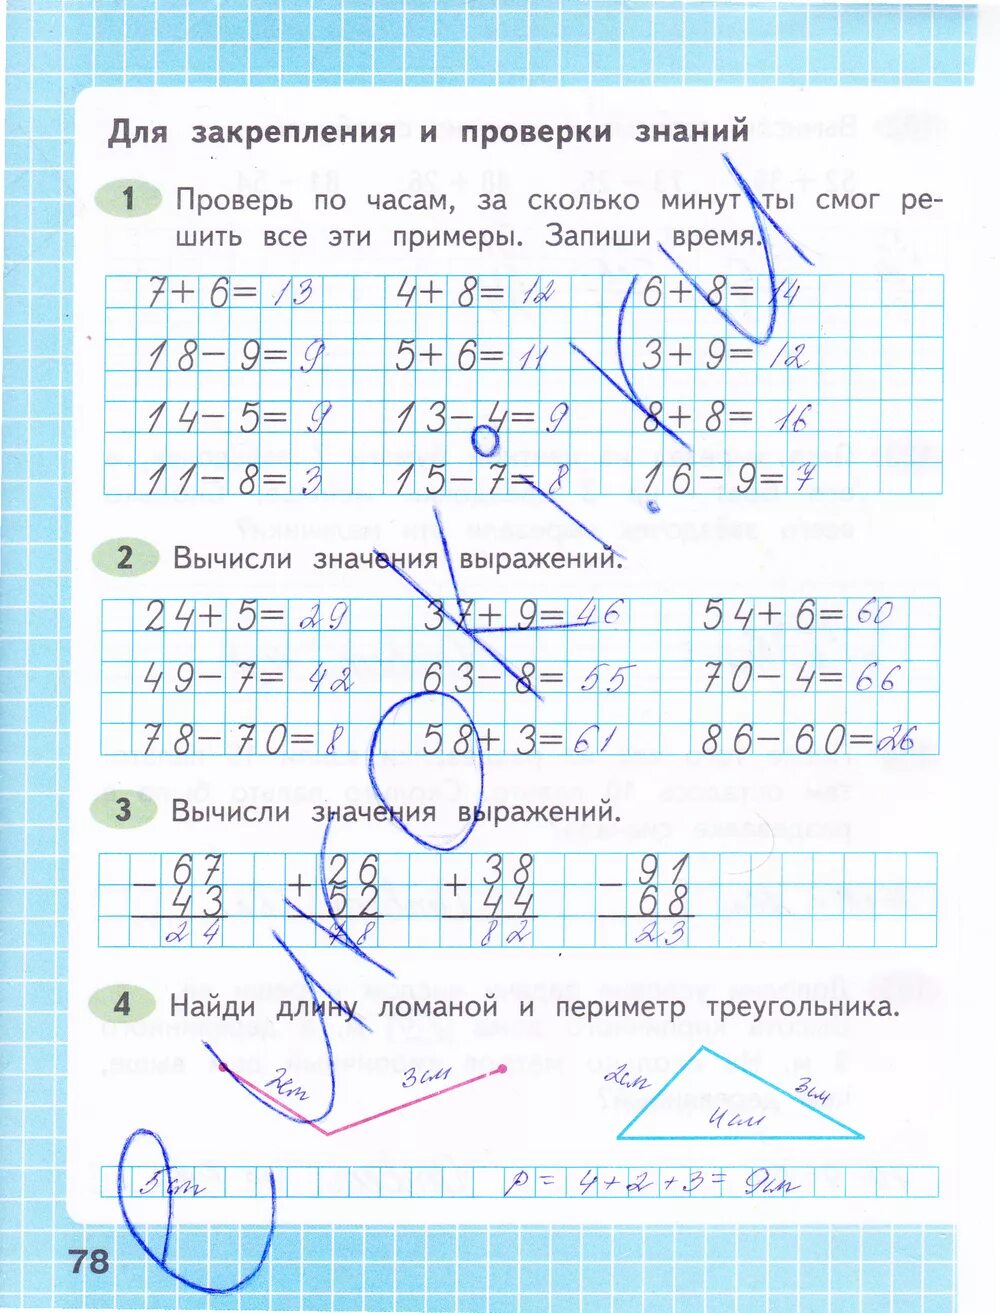 Для закрепления и проверки знаний
1 Проверь по часам, за сколько минут ты смог ре-
шить все эти примеры. Запиши время.
7+6=13 4+8=12 6+8=14
18-9=9 5+6=11 3+9=12
14-5=9 13-4=9 8+8=16
11-8=3 15-7=8 16-9=7
2 Вычисли значения выражений.
24+5=29 37+9=46 54+6=60
49-7=42 63-8=55 70-4=66
78-70=8 58+3=61 86-60=26
3 Вычисли значения выражений.
- 67 + 26 + 38 - 91
43 52 44 68
24 78 82 23
4 Найди длину ломаной и периметр треугольника.
2см 3см 2см 3см
4см
5см P = 4+2+3= 9см
78